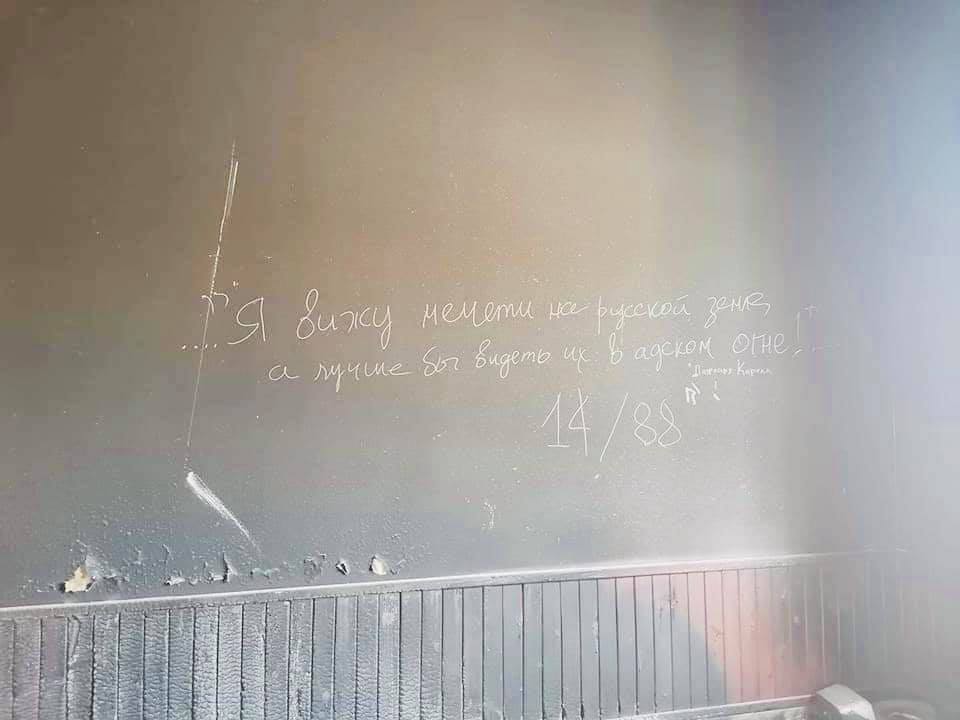 .... "Я вижу мечети на русской земле,
а лучше бы видеть их в адском огне!
14/88